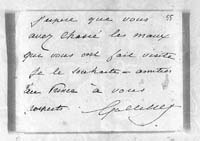 J'espère que vous
avez chassé les maux
que vous ont fait visite
Je le souhaite - amitiés
à vous
respects